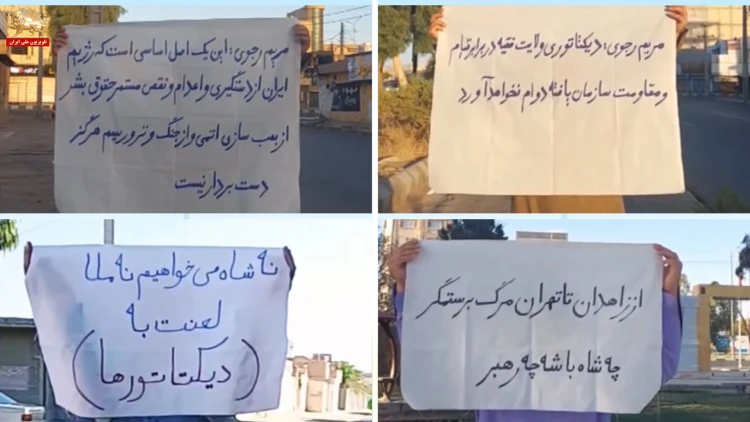 تلویزیون ملی ایران
مریم رجوی: این یک اصل اساسی است که رژیم
ایران از دستگیری و اعدام و نقض مستمر حقوق بشر
از بمب سازی اتمی و از جنگ و تروریسم هرگز
دست بردار نیست
مریم رجوی: دیکتاتوری ولایت فقیه در برابر قیام
و مقاومت سازمان یافته دوام نخواهد آورد
نه شاه می خواهیم نه ملا
لعنت به
(دیکتاتورها)
از زاهدان تا تهران مرگ بر ستمگر
چه شاه باشه چه رهبر